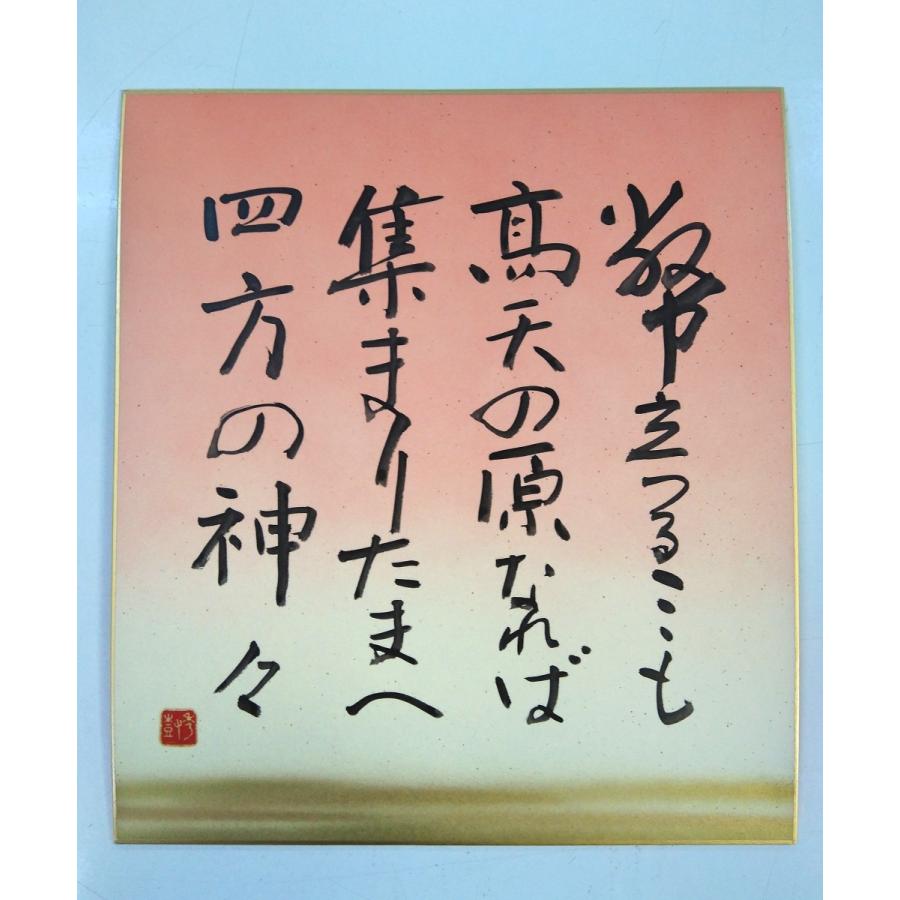 幣立つるこゝも
高天の原なれば
集まりたまへ
四方の神々